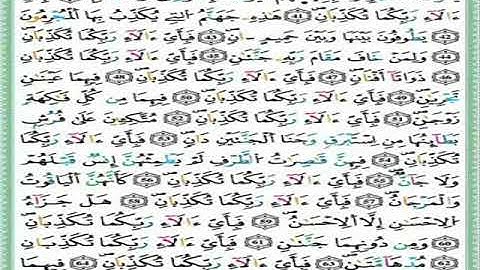 ءَالَآءِ رَبِّكُمَا تُكَذِّبَانِ 41 هَٰذِهِۦ جَهَنَّمُ اُ۬لتِے يُكَذِّبُ بِهَا اَ۬لْمُجْرِمُونَ
42 يَطُوفُونَ بَيْنَهَا وَبَيْنَ حَمِيمٍ اٰنٖ 43 فَبِأَيِّ ءَالَآءِ رَبِّكُمَا تُكَذِّبَانِ
44 وَلِمَنْ خَافَ مَقَامَ رَبِّهِۦ جَنَّتَٰنِ 45 فَبِأَيِّ ءَالَآءِ رَبِّكُمَا تُكَذِّبَانِ
46 ذَوَاتَآ أَفْنَانٖ 47 فَبِأَيِّ ءَالَآءِ رَبِّكُمَا تُكَذِّبَانِ 48 فِيهِمَا عَيْنَٰنِ
تَجْرِيَٰنِ 49 فَبِأَيِّ ءَالَآءِ رَبِّكُمَا تُكَذِّبَانِ 50 فِيهِمَا مِن كُلِّ فَٰكِهَةٖ
زَوْجَٰنِ 51 فَبِأَيِّ ءَالَآءِ رَبِّكُمَا تُكَذِّبَانِ 52 مُتَّكِـِٕينَ عَلَىٰ فُرُشِۢ
بَطَآئِنُهَا مِنِ اِسْتَبْرَقٖ وَجَنَا اَ۬لْجَنَّتَيْنِ دَانٖ 53 فَبِأَيِّ ءَالَآءِ رَبِّكُمَا
تُكَذِّبَانِ 54 فِيهِنَّ قَٰصِرَٰتُ اُ۬لطَّرْفِ لَمْ يَطْمِثْهُنَّ إِنسٞ قَبْلَهُمْ
وَلَا جَآنّٞ 55 فَبِأَيِّ ءَالَآءِ رَبِّكُمَا تُكَذِّبَانِ 56 كَأَنَّهُنَّ اَ۬لْيَاقُوتُ
وَالْمَرْجَانُ 57 فَبِأَيِّ ءَالَآءِ رَبِّكُمَا تُكَذِّبَانِ 58 هَلْ جَزَآءُ
اُ۬لِاحْسَٰنِ إِلَّا اَ۬لِاحْسَٰنُ 59 فَبِأَيِّ ءَالَآءِ رَبِّكُمَا تُكَذِّبَانِ
60 وَمِن دُونِهِمَا جَنَّتَٰنِ 61 فَبِأَيِّ ءَالَآءِ رَبِّكُمَا تُكَذِّبَانِ
62 مُدْهَآمَّتَٰنِ 63 فَبِأَيِّ ءَالَآءِ رَبِّكُمَا تُكَذِّبَانِ 64 فِيهِمَا